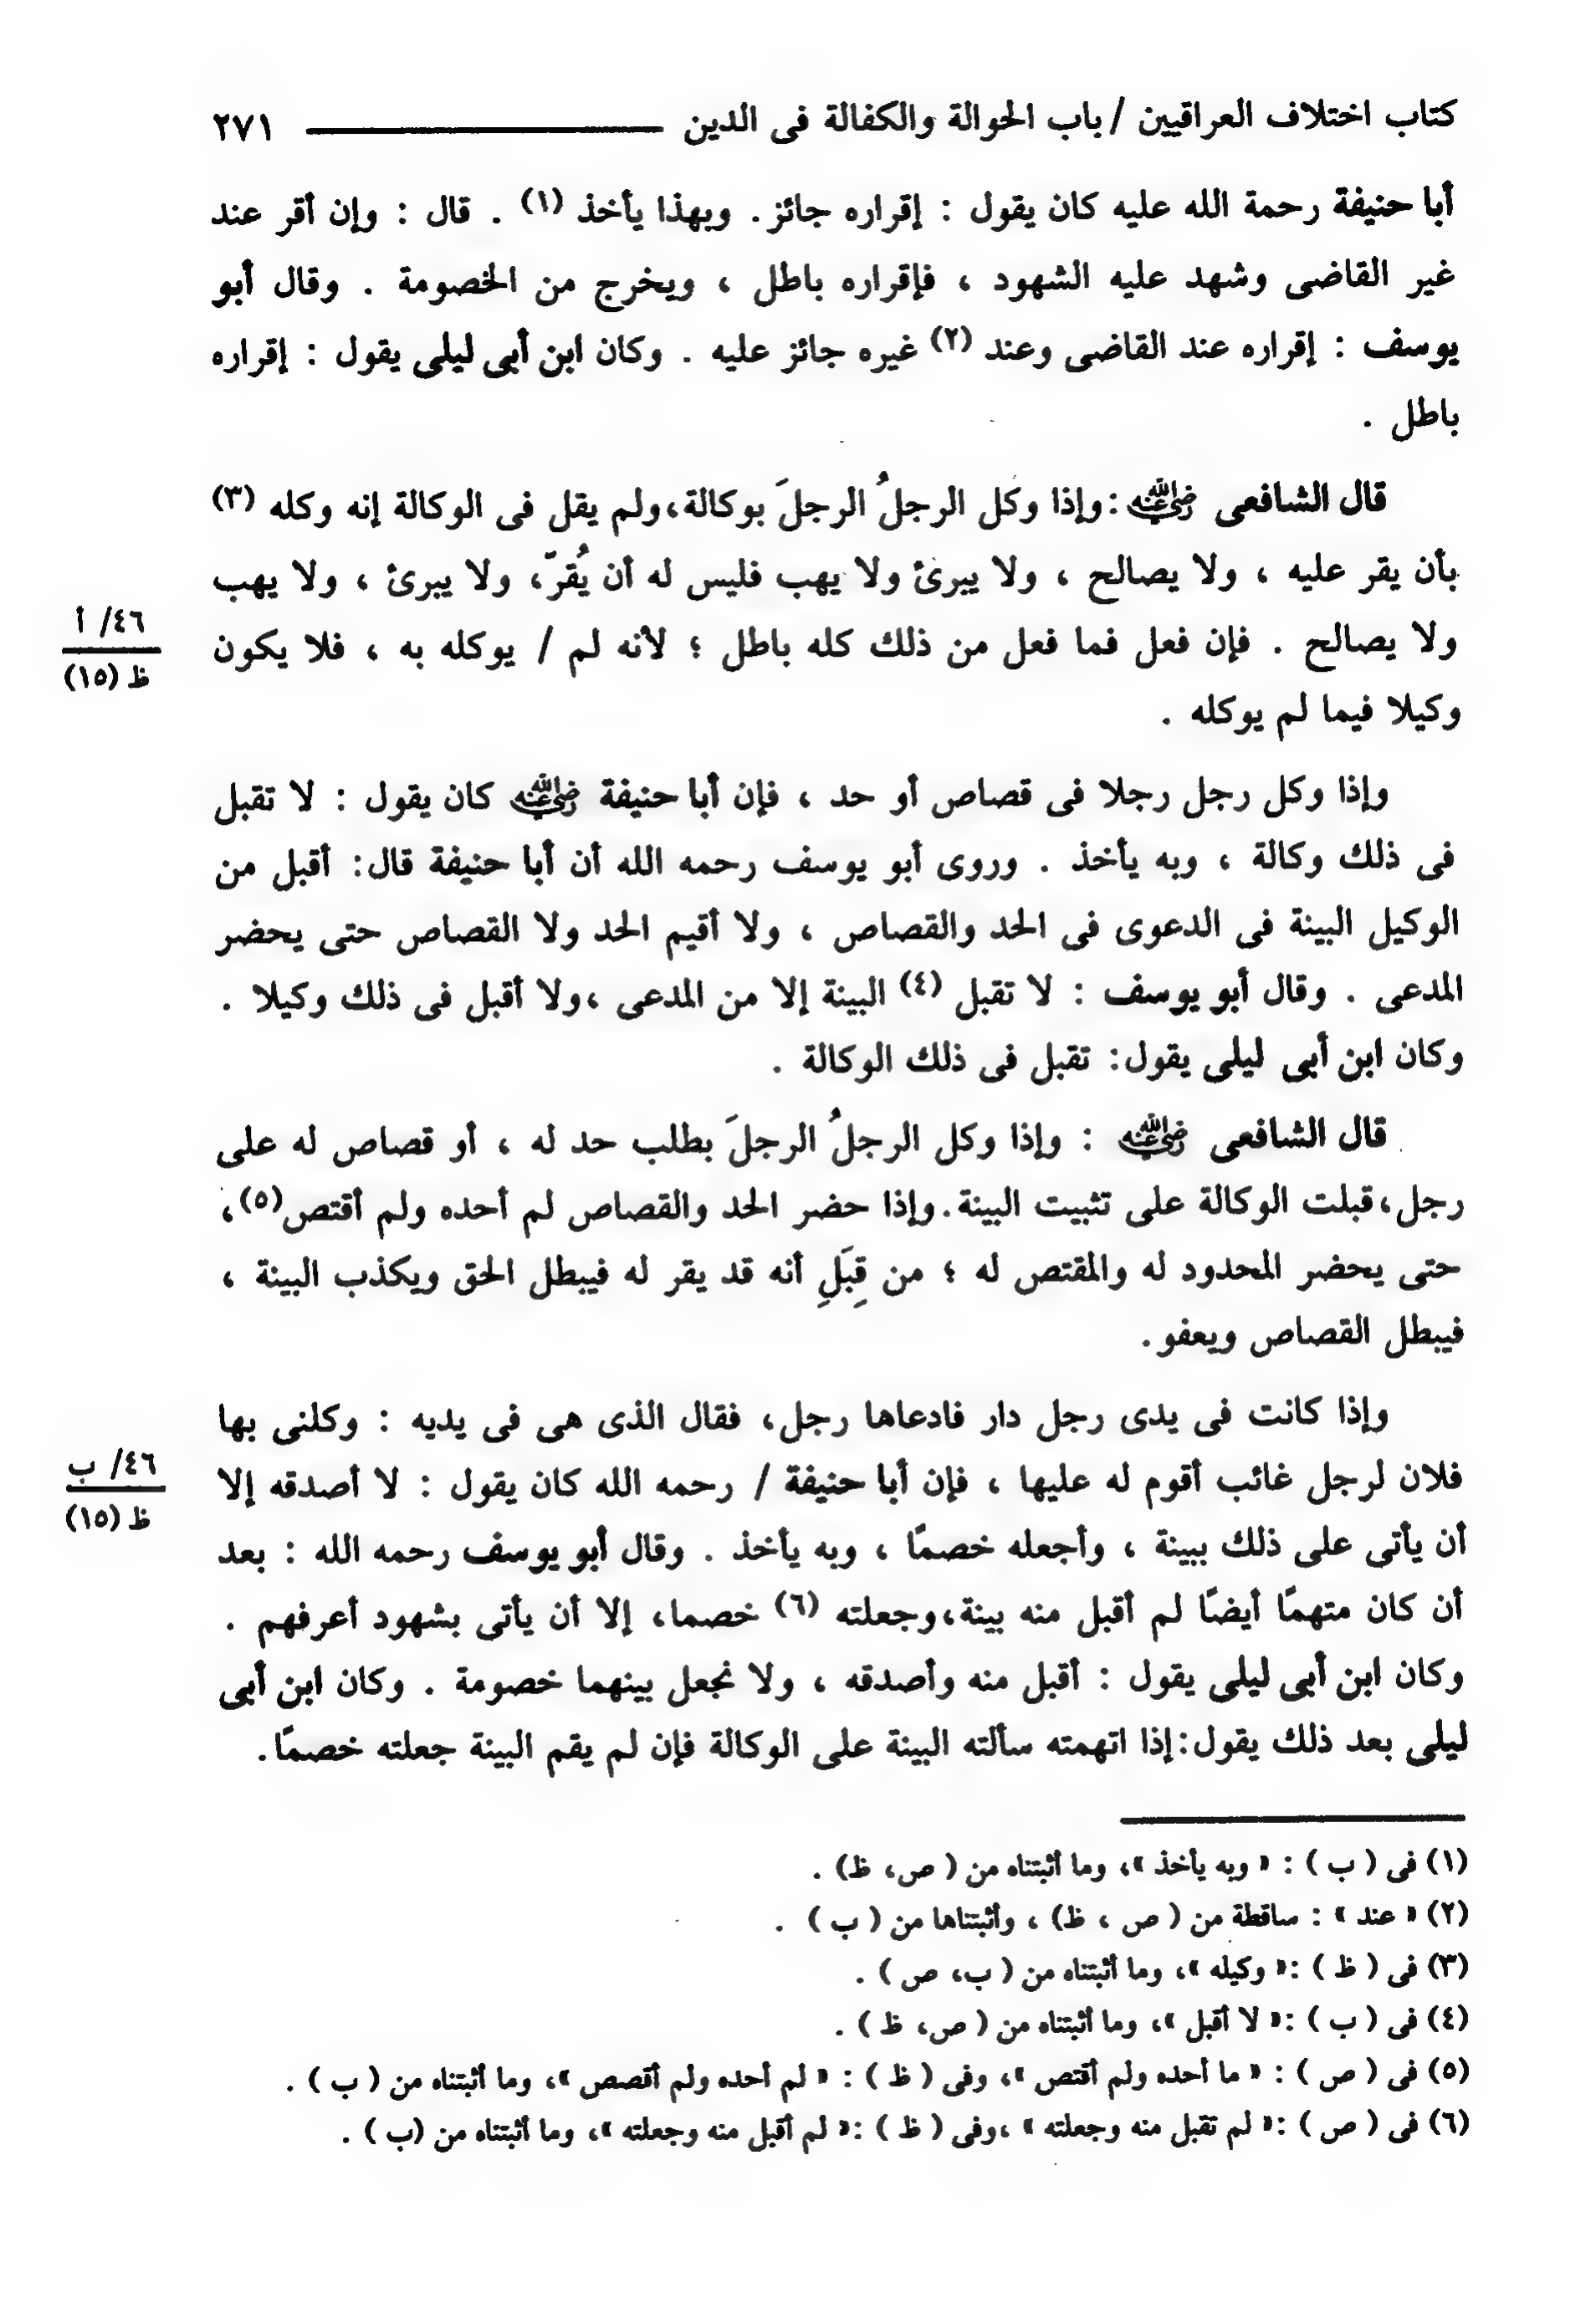 كتاب اختلاف العراقيين / باب الحوالة والكفالة فى الدين ٢٧١
أبا حنيفة رحمة الله عليه كان يقول : إقراره جائز. وبهذا يأخذ (١) . قال : وإن أقر عند
غير القاضى وشهد عليه الشهود ، فإقراره باطل ، ويخرج من الخصومة . وقال أبو
يوسف : إقراره عند القاضى وعند (٢) غيره جائز عليه . وكان ابن أبى ليلى يقول : إقراره
باطل .
قال الشافعى رضي الله عنه :وإذا وكل الرجلُ الرجلَ بوكالة،ولم يقل فى الوكالة إنه وكله (٣)
بأن يقر عليه ، ولا يصالح ، ولا يبرئ ولا يهب فليس له أن يُقرّ، ولا يبرئ ، ولا يهب
ولا يصالح . فإن فعل فما فعل من ذلك كله باطل ؛ لأنه لم / يوكله به ، فلا يكون
٤٦/ أ
ظ (١٥)
وكيلا فيما لم يوكله .
وإذا وكل رجل رجلا فى قصاص أو حد ، فإن أبا حنيفة رضي الله عنه كان يقول : لا تقبل
فى ذلك وكالة ، وبه يأخذ . وروى أبو يوسف رحمه الله أن أبا حنيفة قال: أقبل من
الوكيل البينة فى الدعوى فى الحد والقصاص ، ولا أقيم الحد ولا القصاص حتى يحضر
المدعى . وقال أبو يوسف : لا تقبل (٤) البينة إلا من المدعى ،ولا أقبل فى ذلك وكيلا .
وكان ابن أبى ليلى يقول: تقبل فى ذلك الوكالة .
قال الشافعى رضي الله عنه : وإذا وكل الرجلُ الرجلَ بطلب حد له ، أو قصاص له على
رجل،قبلت الوكالة على تثبيت البينة.وإذا حضر الحد والقصاص لم أحده ولم أقتص(٥)،
حتى يحضر المحدود له والمقتص له ؛ من قِبَلِ أنه قد يقر له فيبطل الحق ويكذب البينة ،
فيبطل القصاص ويعفو.
وإذا كانت فى يدى رجل دار فادعاها رجل، فقال الذى هى فى يديه : وكلنى بها
فلان لرجل غائب أقوم له عليها ، فإن أبا حنيفة / رحمه الله كان يقول : لا أصدقه إلا
٤٦/ ب
ظ (١٥)
أن يأتى على ذلك ببينة ، وأجعله خصمًا ، وبه يأخذ . وقال أبو يوسف رحمه الله : بعد
أن كان متهمًا أيضًا لم أقبل منه بينة،وجعلته (٦) خصما، إلا أن يأتى بشهود أعرفهم .
وكان ابن أبى ليلى يقول : أقبل منه وأصدقه ، ولا نجعل بينهما خصومة . وكان ابن أبى
ليلى بعد ذلك يقول:إذا اتهمته سألته البينة على الوكالة فإن لم يقم البينة جعلته خصمًا.
(١) فى ( ب ) : « وبه يأخذ »، وما أثبتناه من ( ص، ظ) .
(٢) « عند » : ساقطة من ( ص ، ظ) ، وأثبتناها من ( ب ) .
(٣) فى ( ظ ) :« وكيله »، وما أثبتناه من ( ب، ص ) .
(٤) فى ( ب ) :« لا أقبل »، وما أثبتناه من ( ص، ظ ) .
(٥) فى ( ص ) : « ما أحده ولم أقتص »، وفى ( ظ ) : « لم أحده ولم أقصص »، وما أثبتناه من ( ب ) .
(٦) فى ( ص ) :« لم تقبل منه وجعلته » ،وفى ( ظ ) :« لم أقبل منه وجعلته »، وما أثبتناه من (ب ) .